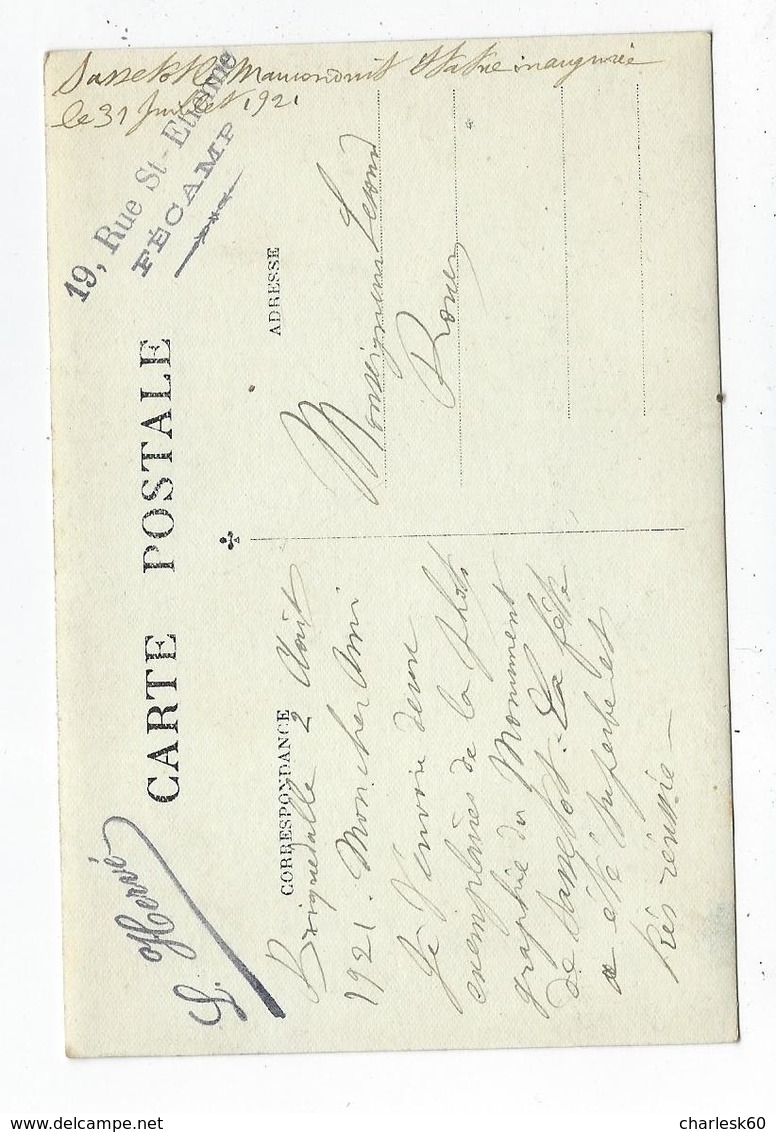 Sassetot le Mauconduit Statue inaugurée
le 31 Juillet 1921
19, Rue St-Etienne
FÉCAMP
L. Hervé
CARTE POSTALE
CORRESPONDANCE
Briquedalle 2 Août
1921. Mon cher Ami
Je t'envoie deux
exemplaires de la photo
graphie du Monument
de Sassetot. La fête
a été superbe et
très réussie —
ADRESSE
Monseigneur
Rouen
charlesk60